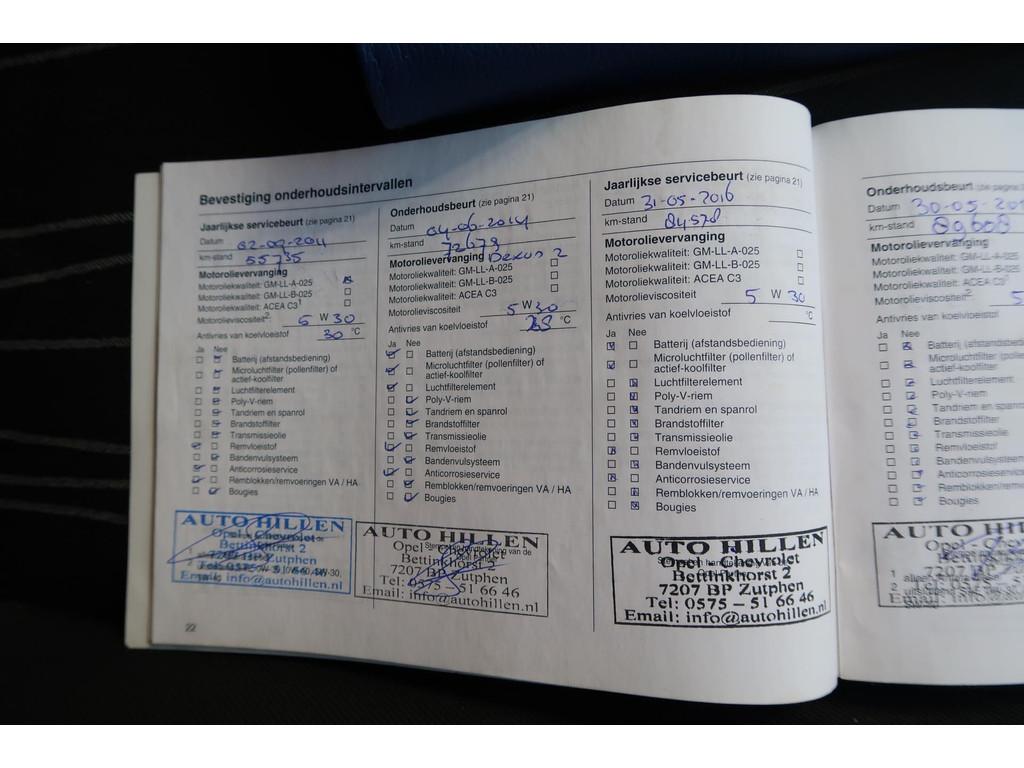 Bevestiging onderhoudsintervallen
Jaarlijkse servicebeurt (zie pagina 21)
Datum 02-09-2011
km-stand 55735
Motorolievervanging
Motoroliekwaliteit: GM-LL-A-025
Motoroliekwaliteit: GM-LL-B-025
Motoroliekwaliteit: ACEA C3
Motorolieviscositeit 5 W 30
Antivries van koelvloeistof 30 °C
Ja Nee
Batterij (afstandsbediening)
Microluchtfilter (pollenfilter) of
actief-koolfilter
Luchtfilterelement
Poly-V-riem
Tandriem en spanrol
Brandstoffilter
Transmissieolie
Remvloeistof
Bandenvulsysteem
Anticorrosieservice
Remblokken/remvoeringen VA / HA
Bougies
AUTO HILLEN
Opel - Chevrolet
Bettinkhorst 2
7207 BP Zutphen
Email: info@autohillen.nl
22
Onderhoudsbeurt (zie pagina 21)
Datum 04-06-2014
km-stand 72679
Motorolievervanging Dexos 2
Motoroliekwaliteit: GM-LL-A-025
Motoroliekwaliteit: GM-LL-B-025
Motoroliekwaliteit: ACEA C3
Motorolieviscositeit 5 W 30
Antivries van koelvloeistof °C
Ja Nee
Batterij (afstandsbediening)
Microluchtfilter (pollenfilter) of
actief-koolfilter
Luchtfilterelement
Poly-V-riem
Tandriem en spanrol
Brandstoffilter
Transmissieolie
Remvloeistof
Bandenvulsysteem
Anticorrosieservice
Remblokken/remvoeringen VA / HA
Bougies
AUTO HILLEN
Opel - Chevrolet
Bettinkhorst 2
7207 BP Zutphen
Tel: 0575 - 51 66 46
Email: info@autohillen.nl
Jaarlijkse servicebeurt (zie pagina 21)
Datum 31-05-2016
km-stand 84578
Motorolievervanging
Motoroliekwaliteit: GM-LL-A-025
Motoroliekwaliteit: GM-LL-B-025
Motoroliekwaliteit: ACEA C3
Motorolieviscositeit 5 W 30
Antivries van koelvloeistof °C
Ja Nee
Batterij (afstandsbediening)
Microluchtfilter (pollenfilter) of
actief-koolfilter
Luchtfilterelement
Poly-V-riem
Tandriem en spanrol
Brandstoffilter
Transmissieolie
Remvloeistof
Bandenvulsysteem
Anticorrosieservice
Remblokken/remvoeringen VA / HA
Bougies
AUTO HILLEN
Opel - Chevrolet
Bettinkhorst 2
7207 BP Zutphen
Tel: 0575 - 51 66 46
Email: info@autohillen.nl
Onderhoudsbeurt
Datum 30-05-201
km-stand 89608
Motorolievervanging
Motoroliekwaliteit: GM-LL-A-025
Motoroliekwaliteit: GM-LL-B-025
Motoroliekwaliteit: ACEA C3
Motorolieviscositeit 5
Antivries van koelvloeistof
Ja Nee
Batterij (afstandsbedie
Microluchtfilter (pollen
actief-koolfilter
Luchtfilterelement
Poly-V-riem
Tandriem en spanrol
Brandstoffilter
Transmissieolie
Remvloeistof
Bandenvulsysteem
Anticorrosieservice
Remblokken/remvoerin
Bougies
AUTO HIL